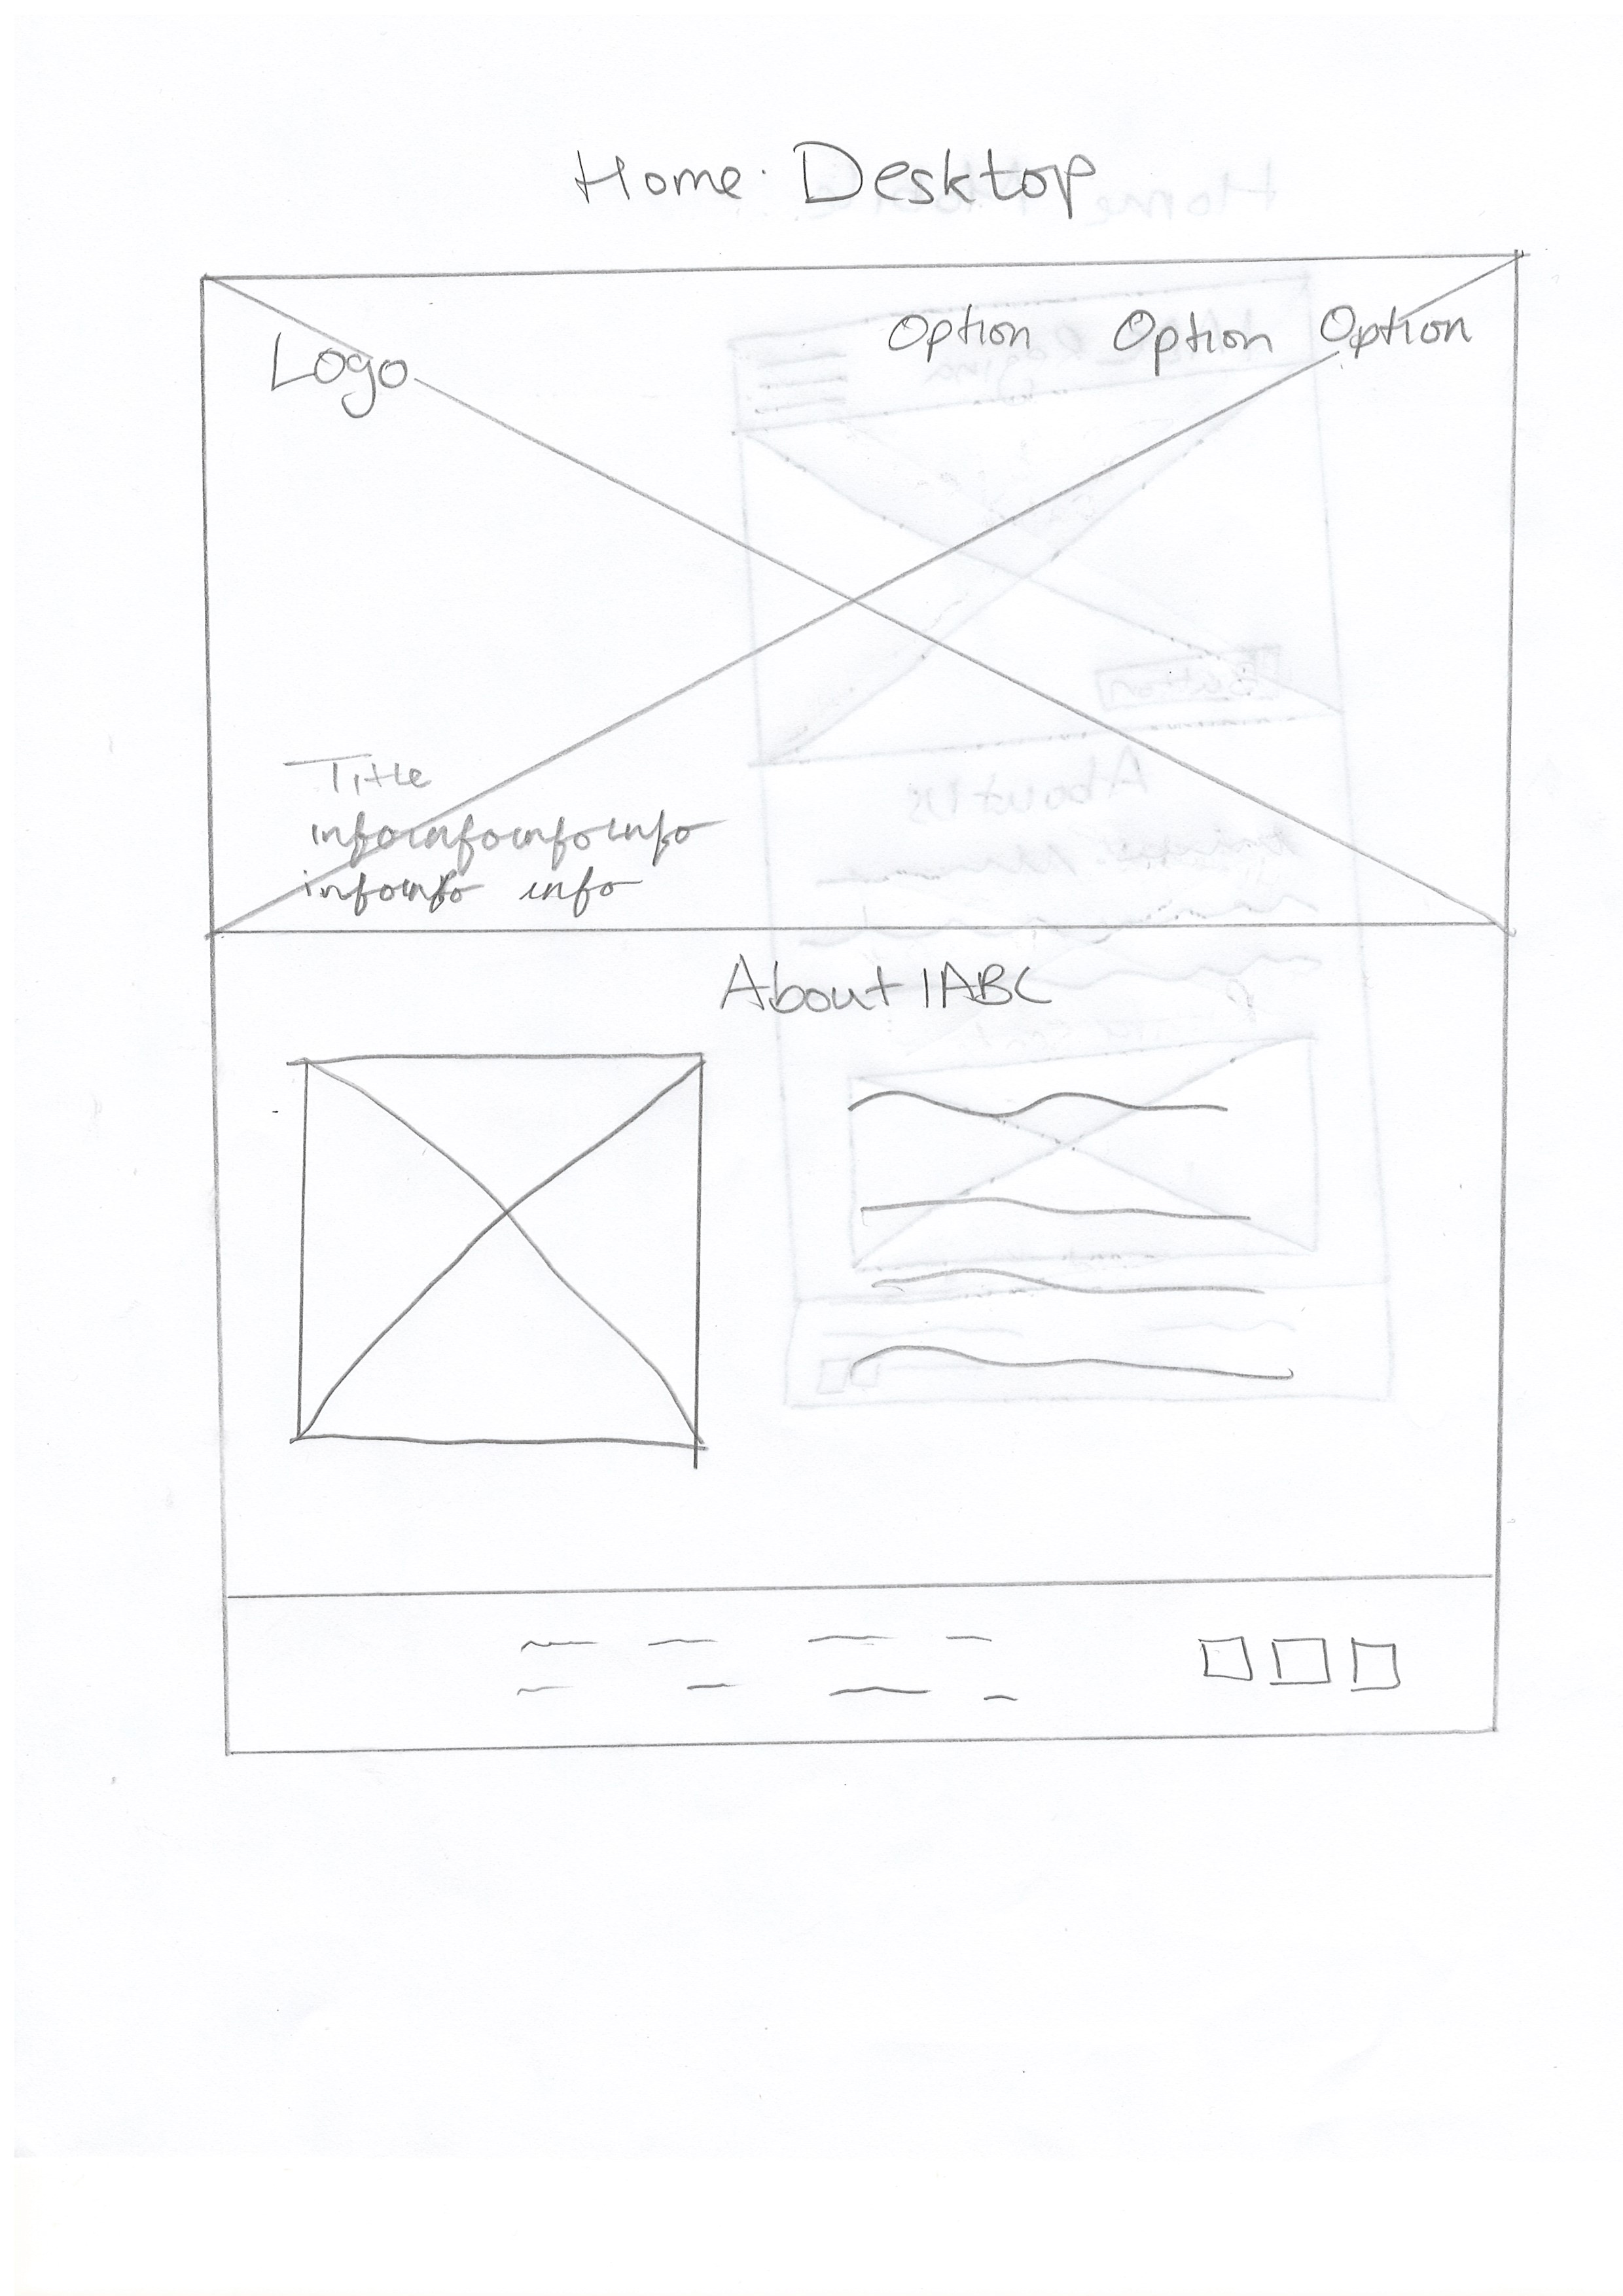 Home. Desktop
Logo
Option Option Option
Title
infoinfoinfoinfo
infoinfo info
About IABC